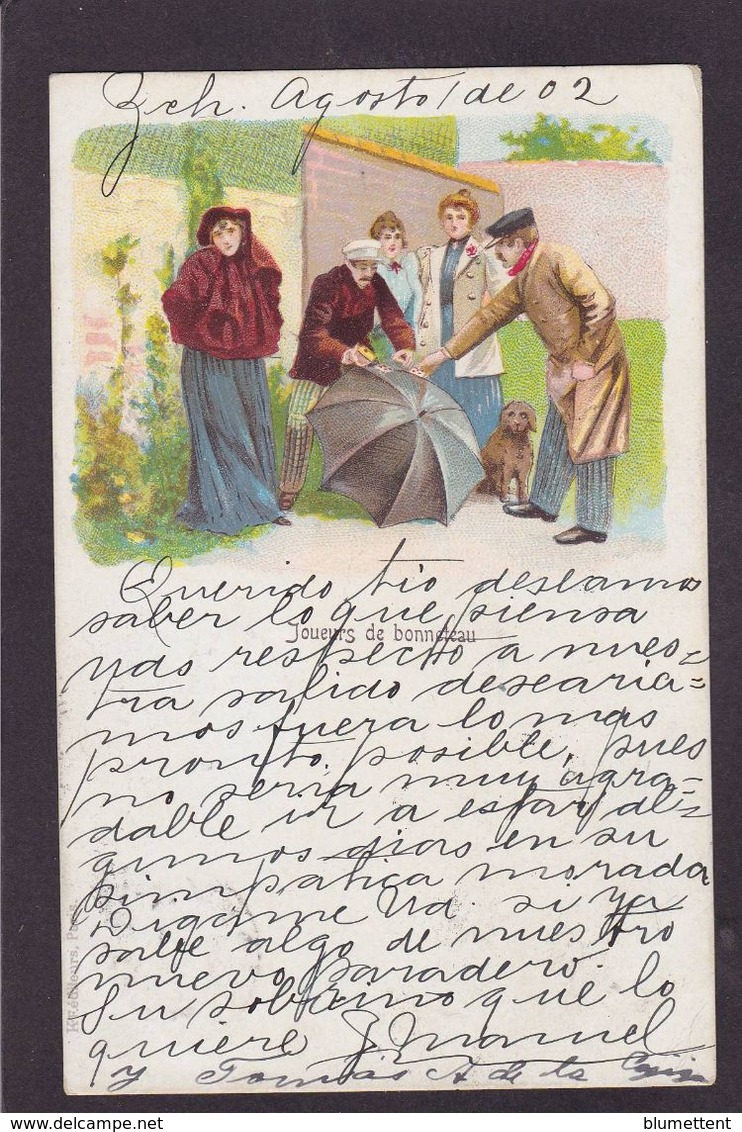 Zch. Agosto 1 de 02
Querido tio deseamos
saber lo que piensa
Joueurs de bonneteau
Vdas respecto a nues-
tra salido desearia-
mos fuera lo mas
pronto posible, pues
no seria muy agra-
dable ir a estar al-
gunos dias en su
simpatica morada
Digame Ud. si ya
sabe algo de nuestro
nuevo paradero.
Su sobrino que lo
quiere J. Manuel
y Tomás A de la
K. éditeurs, Paris
blumettent